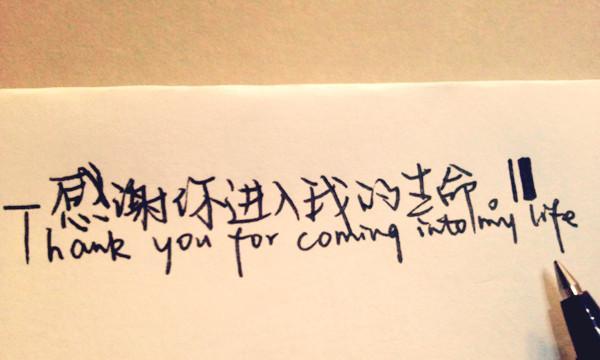 感谢你进入我的生命。
Thank you for coming into my life